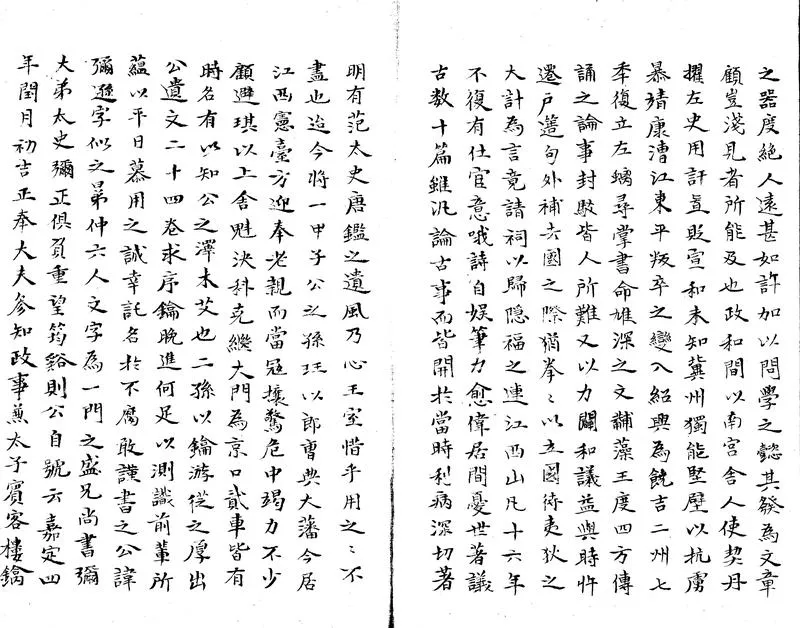 之器度絕人遠甚如許加以問學之懿其發為文章
顧豈淺見者所能及也政和間以南宮舍人使契丹
擢左史用訐直貶宣和末知冀州獨能堅壁以抗虜
暴靖康漕江東平叛卒之變入紹興為饒吉二州七
年復立左螭尋掌書命雄深之文黼藻王度四方傳
誦之論事封駮皆人所難又以力闢和議益與時忤
遷戶簉句外補去國之際猶拳〻以立國待夷狄之
大計為言竟請祠以歸隱福之連江西山凡十六年
不復有仕宦意哦詩自娛筆力愈偉居間憂世著議
古数十篇雖汎論古事而皆開於當時利病深切著
明有范太史唐鑑之遺風乃心王室惜乎用之〻不
盡也迨今將一甲子公之孫玨以郎曹典大藩今居
江西憲臺方迎奉老親而當冦攘驚危中竭力不少
顧避琪以上舍魁決科克繼大門為京口貳車皆有
時名有以知公之澤未艾也二孫以鑰游從之厚出
公遺文二十四卷求序鑰晚進何足以測識前輩所
蘊以平日慕用之誠幸託名於不腐敢謹書之公諱
彌遜字似之弟仲六人文字為一門之盛兄尚書彌
大弟太史彌正俱負重望筠谿則公自號云嘉定四
年閏月初吉正奉大夫參知政事蒹太子賓客樓鑰